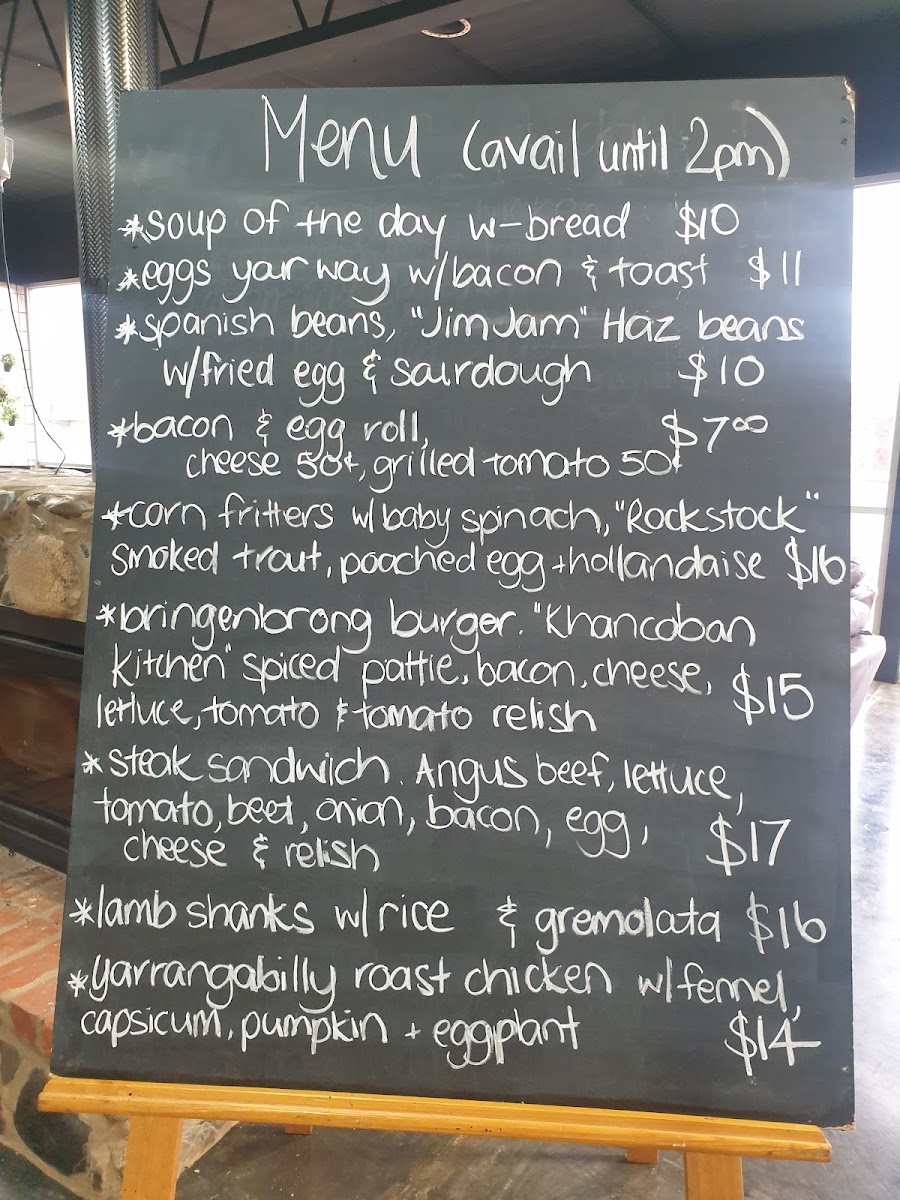 Menu (avail until 2pm)
*soup of the day w-bread $10
*eggs your way w/bacon & toast $11
*spanish beans, "JimJam" Haz beans
w/fried egg & sourdough $10
*bacon & egg roll, $7.00
cheese 50¢, grilled tomato 50¢
*corn fritters w/baby spinach, "Rockstock"
smoked trout, poached egg + hollandaise $16
*bringenbrong burger. "Khancoban
Kitchen" spiced pattie, bacon, cheese,
lettuce, tomato & tomato relish $15
*steak sandwich. Angus beef, lettuce,
tomato, beet, onion, bacon, egg, $17
cheese & relish
*lamb shanks w/rice & gremolata $16
*yarrangabilly roast chicken w/fennel,
capsicum, pumpkin + eggplant $14